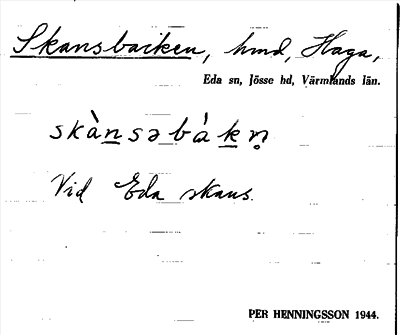 Skansbacken, hmd, Haga,
Eda sn, Jösse hd, Värmlands län.
skànsəbàkn̥
Vid Eda skans.
PER HENNINGSSON 1944.